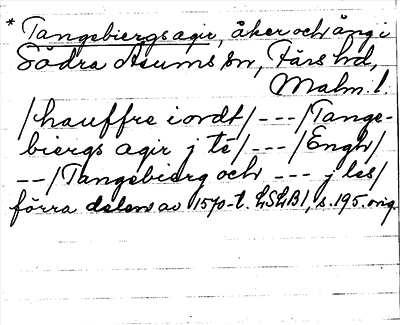 * Tangebiergs agir, åker och äng i
Södra Åsums sn, Färs hd,
Malm. l.
/hauffre i ordt/ --- /Tange-
biergs agir j té/ --- /Engh/
-- /Tangebierg och --- j les/
förra delen av 1570-t. LSLB1, s. 195. orig.